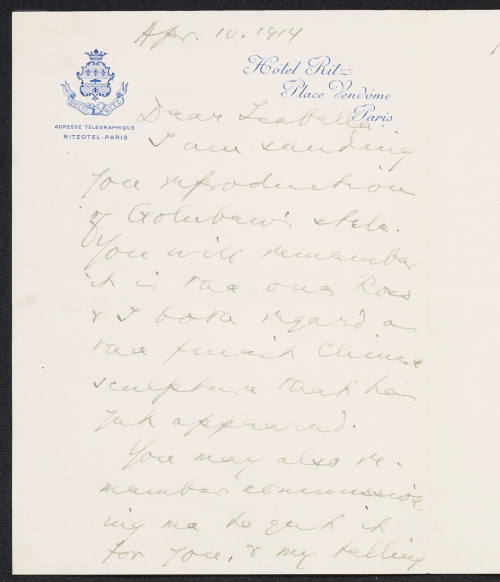 Apr. 10. 1914
Hôtel Ritz
Place Vendôme
Paris
HOTEL RITZ
ADRESSE TÉLÉGRAPHIQUE
RITZOTEL-PARIS
Dear Isabella:
I am sending
you reproduction
of Goloubew's stele.
You will remember
it is the one Ross
& I both regard as
the finest Chinese
sculpture that has
yet appeared.
You may also re-
member commission-
ing me to get it
for you, & my telling